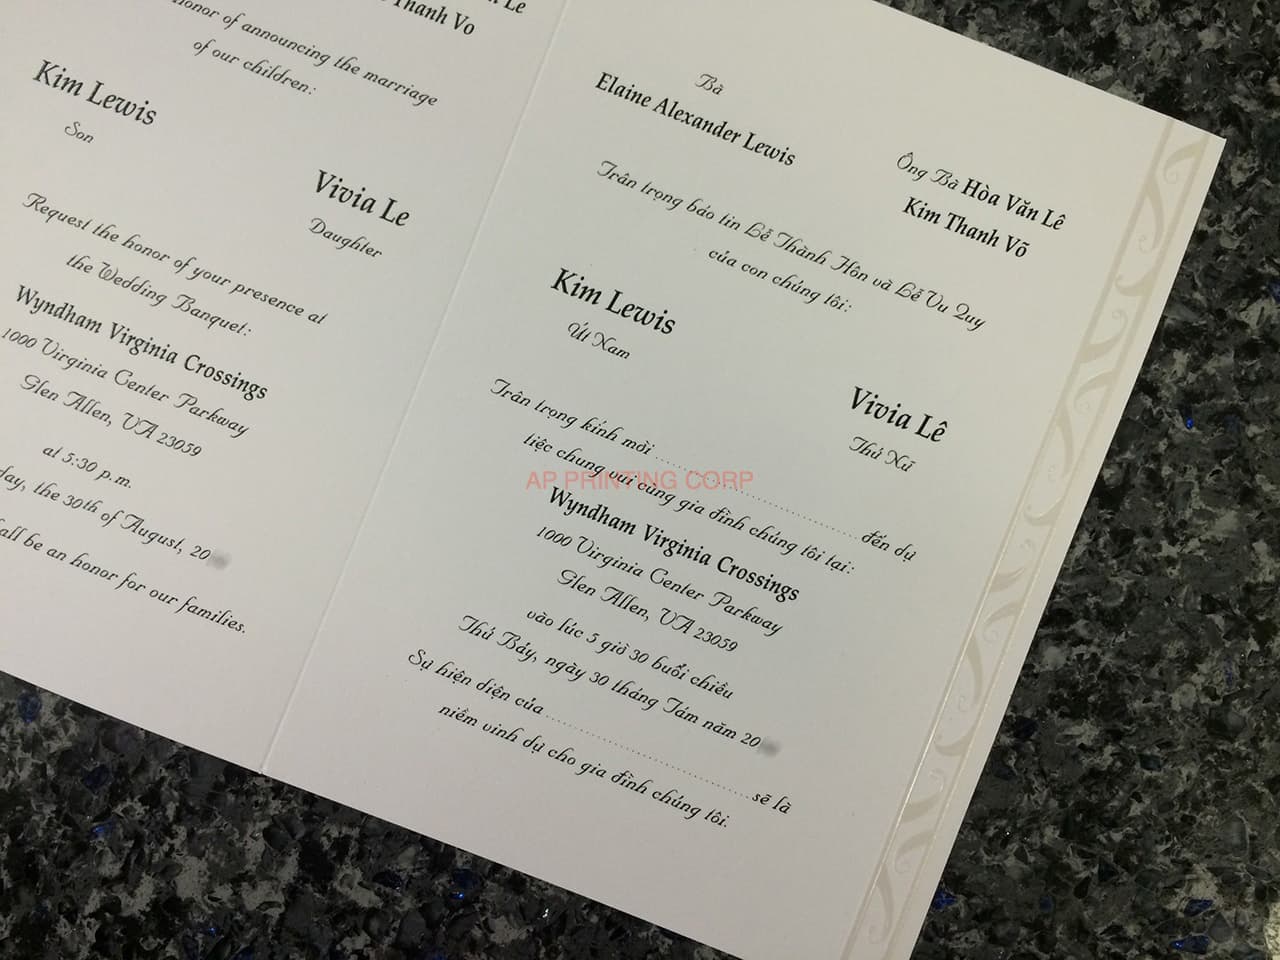 Le
Thanh Vo
honor of announcing the marriage
of our children:
Kim Lewis
Son
Vivia Le
Daughter
Request the honor of your presence at
the Wedding Banquet:
Wyndham Virginia Crossings
1000 Virginia Center Parkway
Glen Allen, VA 23059
at 5:30 p.m.
day, the 30th of August, 20
all be an honor for our families.
Bà
Elaine Alexander Lewis
Ông Bà Hòa Văn Lê
Kim Thanh Võ
Trân trọng báo tin Lễ Thành Hôn và Lễ Vu Quy
của con chúng tôi:
Kim Lewis
Út Nam
Vivia Lê
Thứ Nữ
Trân trọng kính mời .......... đến dự
tiệc chung vui cùng gia đình chúng tôi tại:
Wyndham Virginia Crossings
1000 Virginia Center Parkway
Glen Allen, VA 23059
vào lúc 5 giờ 30 buổi chiều
Thứ Bảy, ngày 30 tháng Tám năm 20
Sự hiện diện của .......... sẽ là
niềm vinh dự cho gia đình chúng tôi.
AP PRINTING CORP